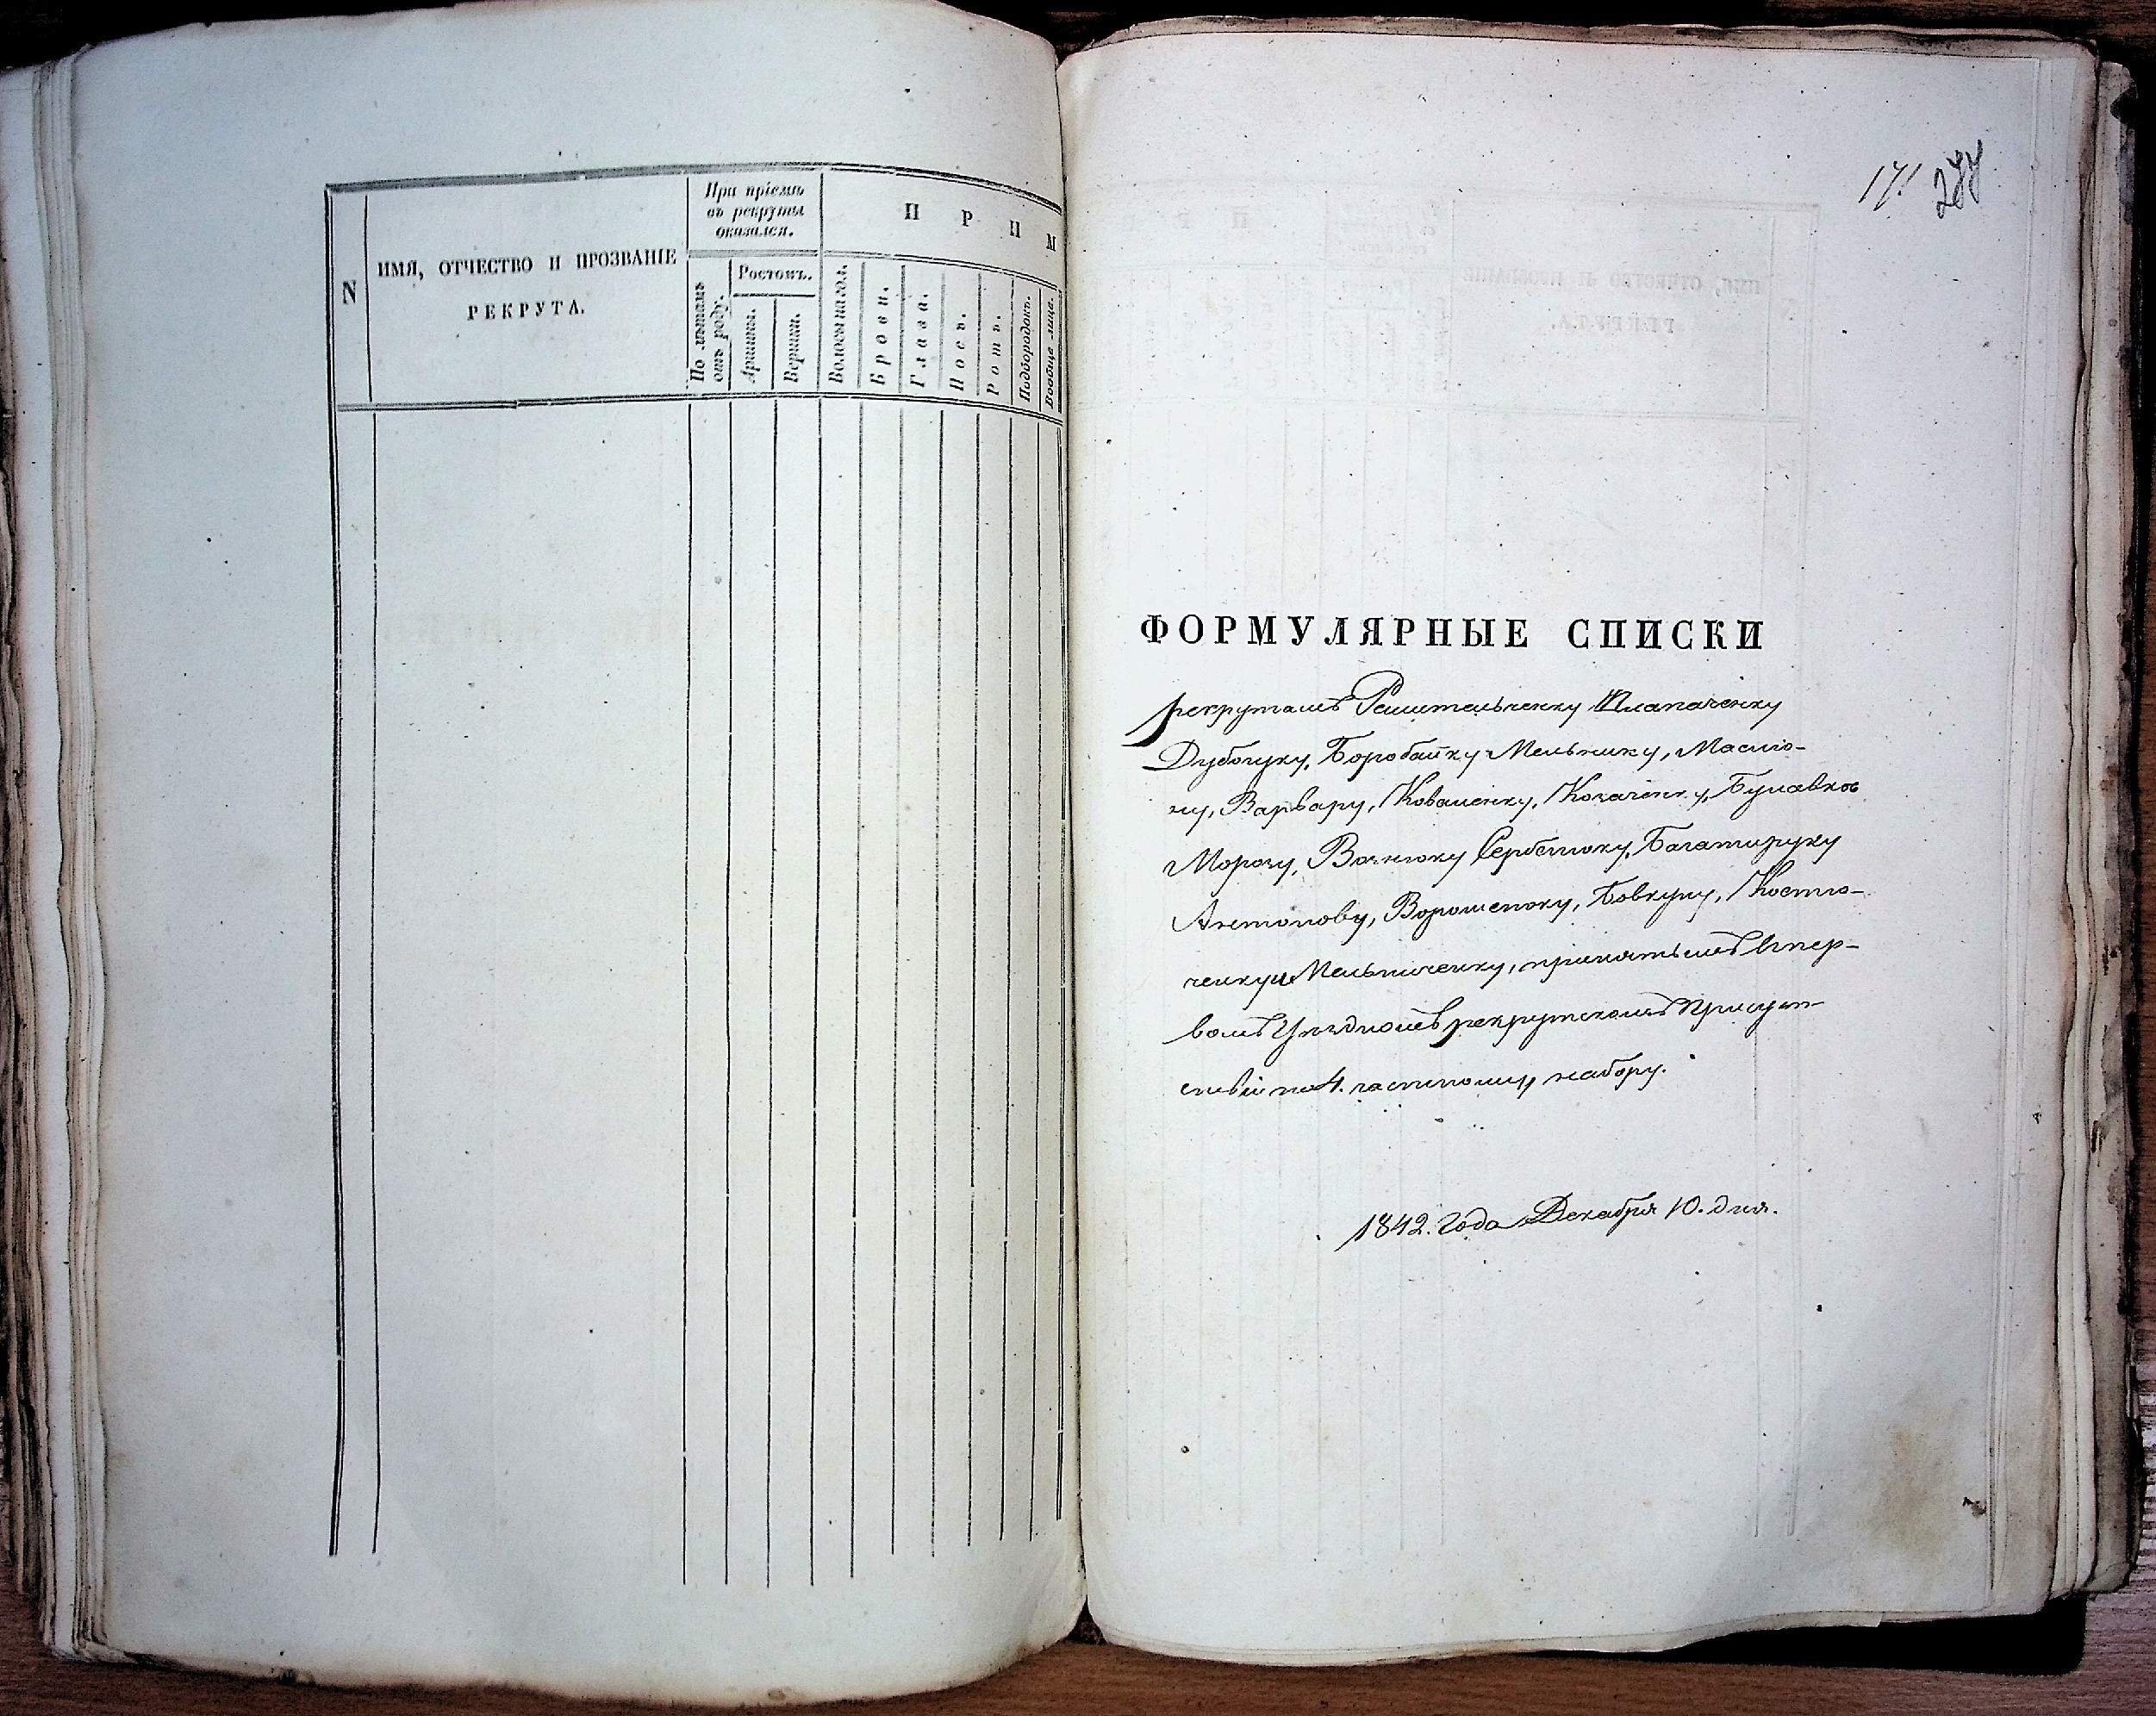 N
ИМЯ, ОТЧЕСТВО И ПРОЗВАНІЕ
РЕКРУТА.
При пріемѣ
въ рекруты
оказался.
По лѣтамъ
отъ роду.
Ростомъ.
Аршины.
Вершки.
П Р И М
Волосы на гол.
Брови.
Глаза.
Носъ.
Ротъ.
Подбородокъ.
Вообще лице.
171 277
ФОРМУЛЯРНЫЕ СПИСКИ
рекрутамъ
Мельнику, Маслю-
ку, Варвару, Коваленку, Козаченку,
Морозу, Вознюку Сербенюку, Багатируку
Антонову, Ворошенюку, Бовкуну, Костю-
ченку и Мельниченку, принятымъ въ пер-
вомъ Уѣздномъ рекрутскомъ Присут-
ствіи по 4. частному набору.
1842. года Декабря 10. дня.